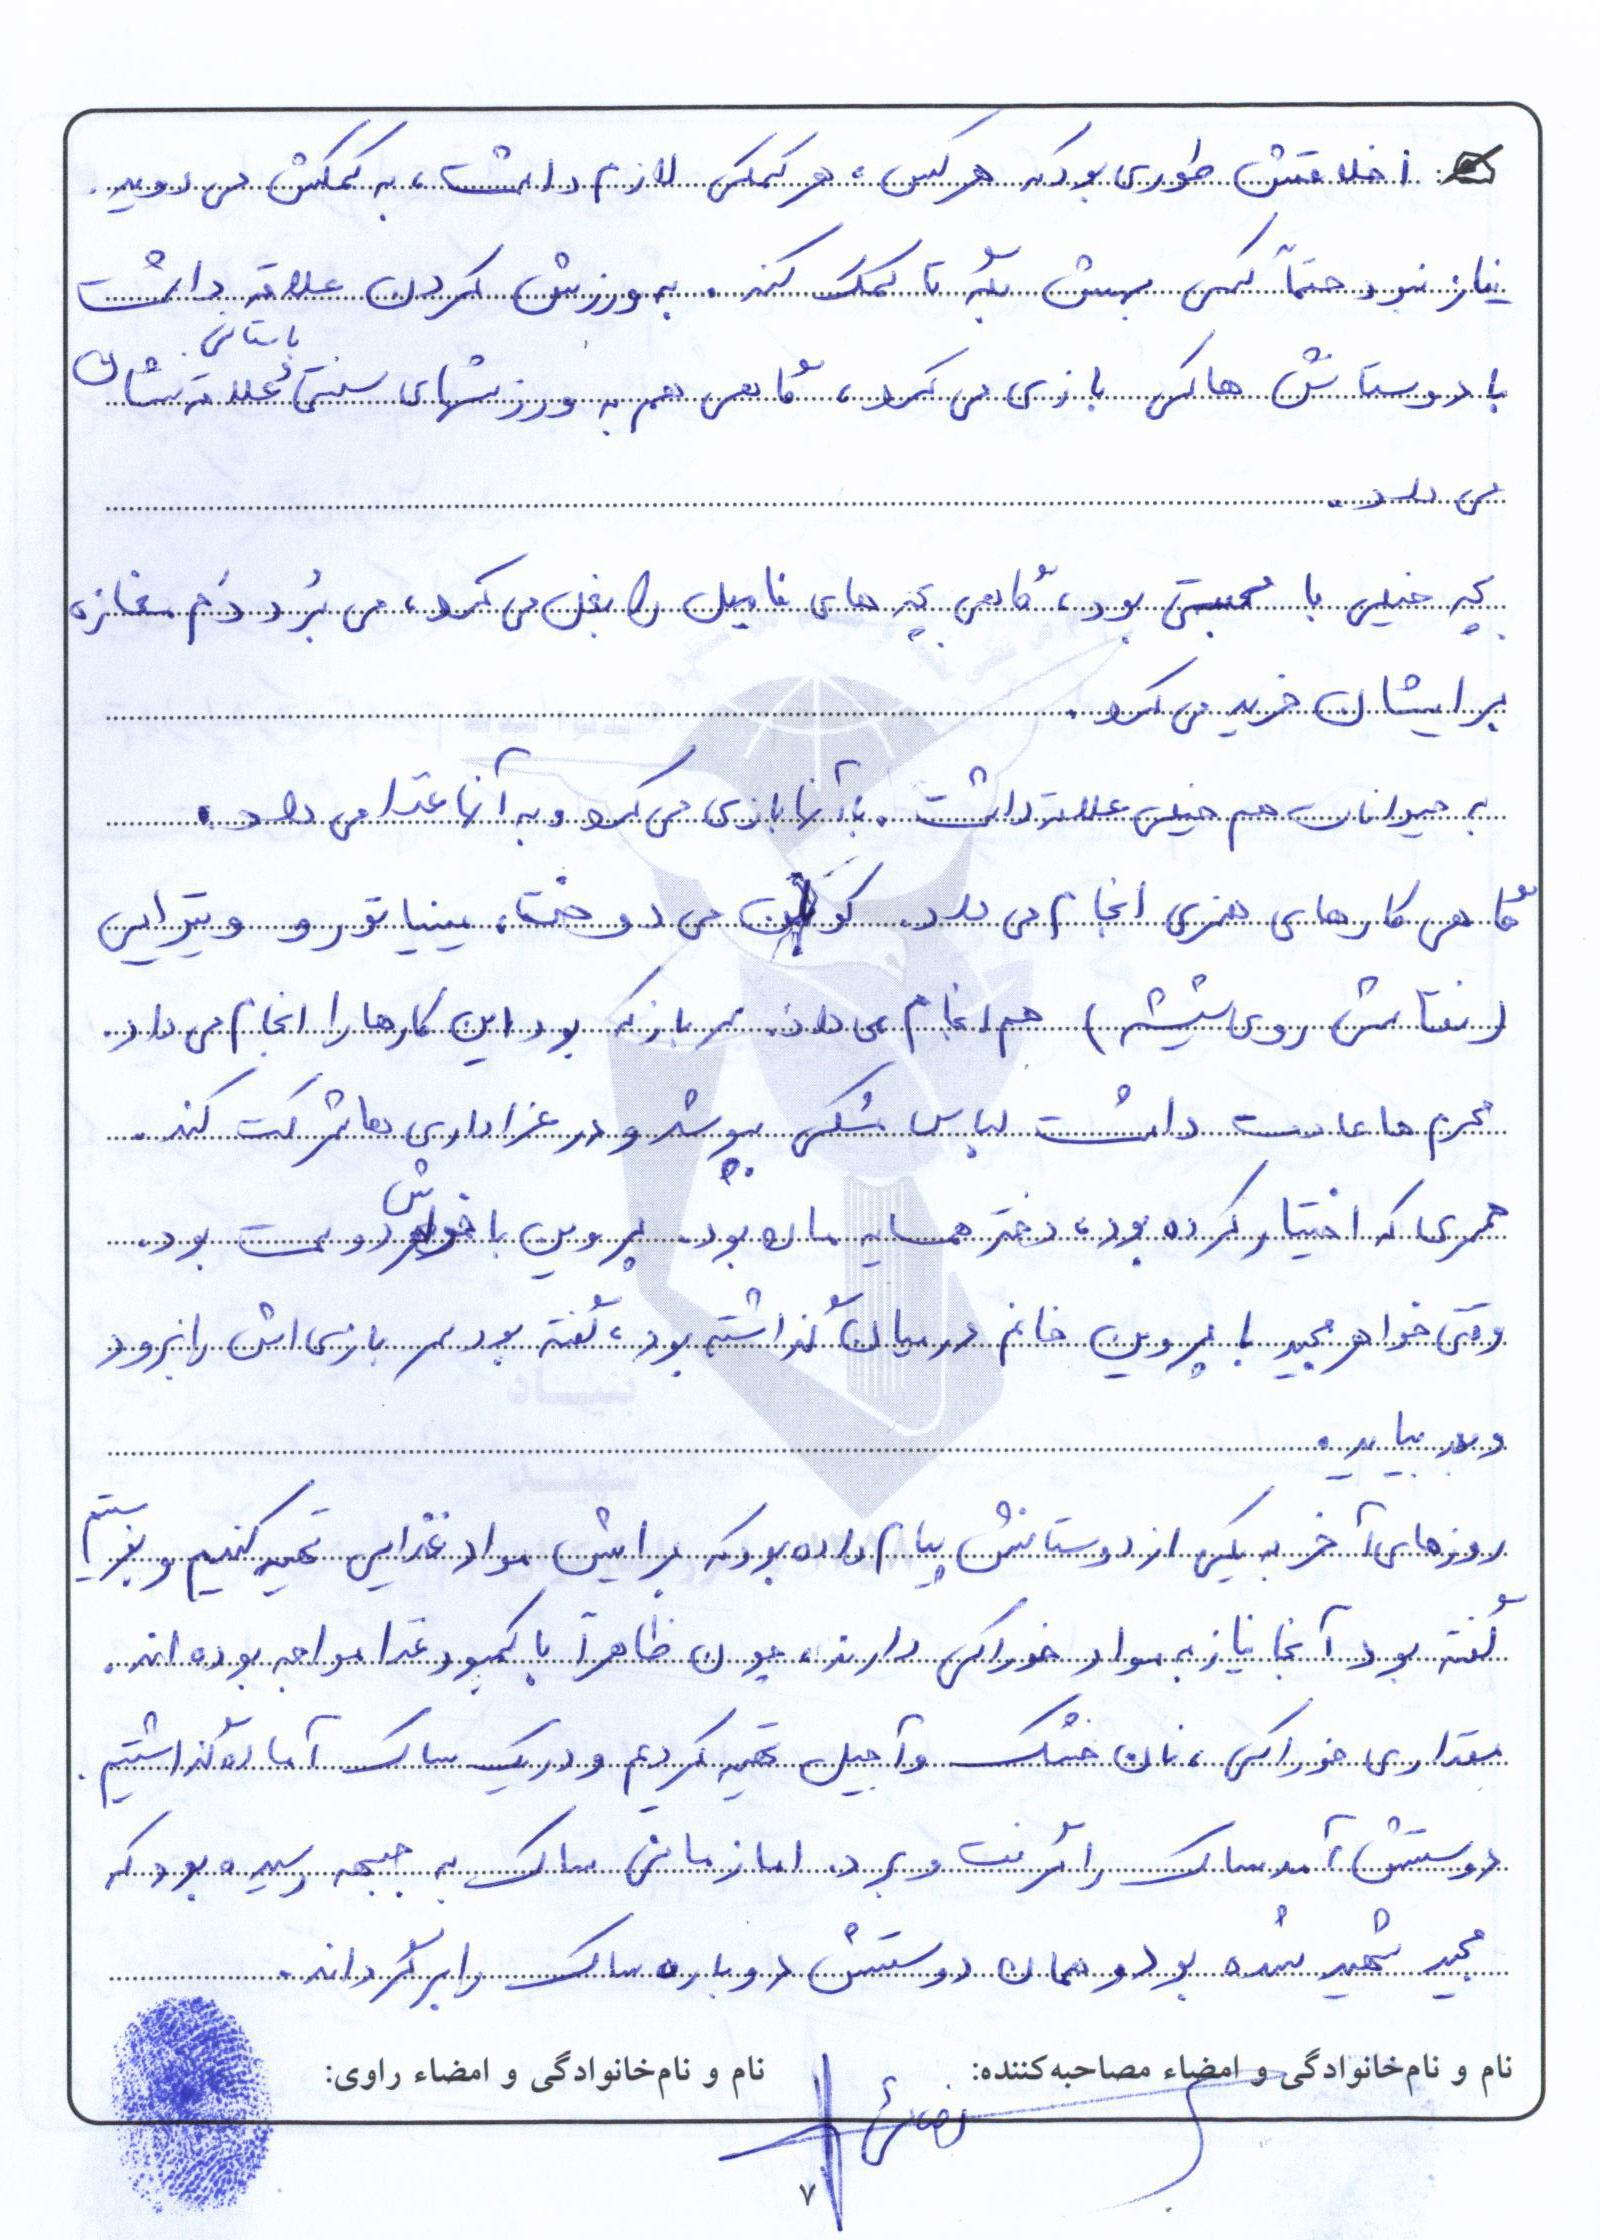 اخلاقش طوری بود که هرکس، هر کمکی لازم داشت، به کمکش می دوید.
نیاز نبود حتماً کسی بهش بگه تا کمک کند. به ورزش کردن علاقه داشت
با دوستانش هاکی بازی می کرد، گاهی هم به ورزشهای سنتی و باستانی علاقه نشان
می داد.
بچه خیلی با محبتی بود، گاهی بچه های فامیل را بغل می کرد، می بُرد دَم مغازه
برایشان خرید می کرد.
به حیوانات هم خیلی علاقه داشت. با آنها بازی می کرد و به آنها غذا می داد.
گاهی کارهای هنری انجام می داد. کوبلن می دوخت، مینیاتور و ویترایی
(نقاشی روی شیشه) هم انجام می داد. سرباز که بود این کارها را انجام می داد.
محرم ها عادت داشت لباس مشکی بپوشد و در عزاداری ها شرکت کند.
همسری که اختیار کرده بود، دختر همسایه مان بود. پروین با خواهرش دوست بود.
وقتی خواهر مجید با پروین خانم در میان گذاشته بود، گفته بود سربازی اش را برود
و بعد بیاید.
روزهای آخر به یکی از دوستانش پیام داده بود که برایش مواد غذایی تهیه کنیم و بفرستیم
گفته بود آنجا نیاز به مواد خوراکی دارند، چون ظاهراً با کمبود غذا مواجه بوده اند.
مقداری خوراکی، نان خشک و آجیل تهیه کردیم و در یک ساک آماده گذاشتیم.
دوستش آمد ساک را گرفت و برد. اما زمانی ساک به جبهه رسیده بود که
مجید شهید شده بود و همان دوستش دوباره ساک را برگرداند.
نام و نام‌خانوادگی و امضاء مصاحبه‌کننده: نام و نام‌خانوادگی و امضاء راوی:
۷